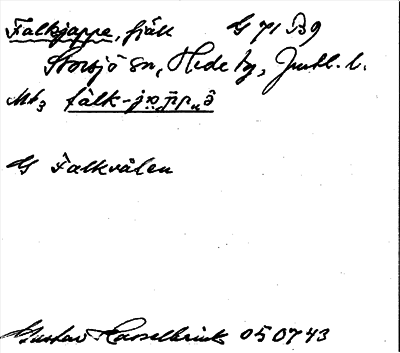 Falkjappe, fjäll G 71 B9
Storsjö sn, Hede tg, Jämtl. l.
Ms₃
G Falkvålen
Gustav Hasselbrink 050743